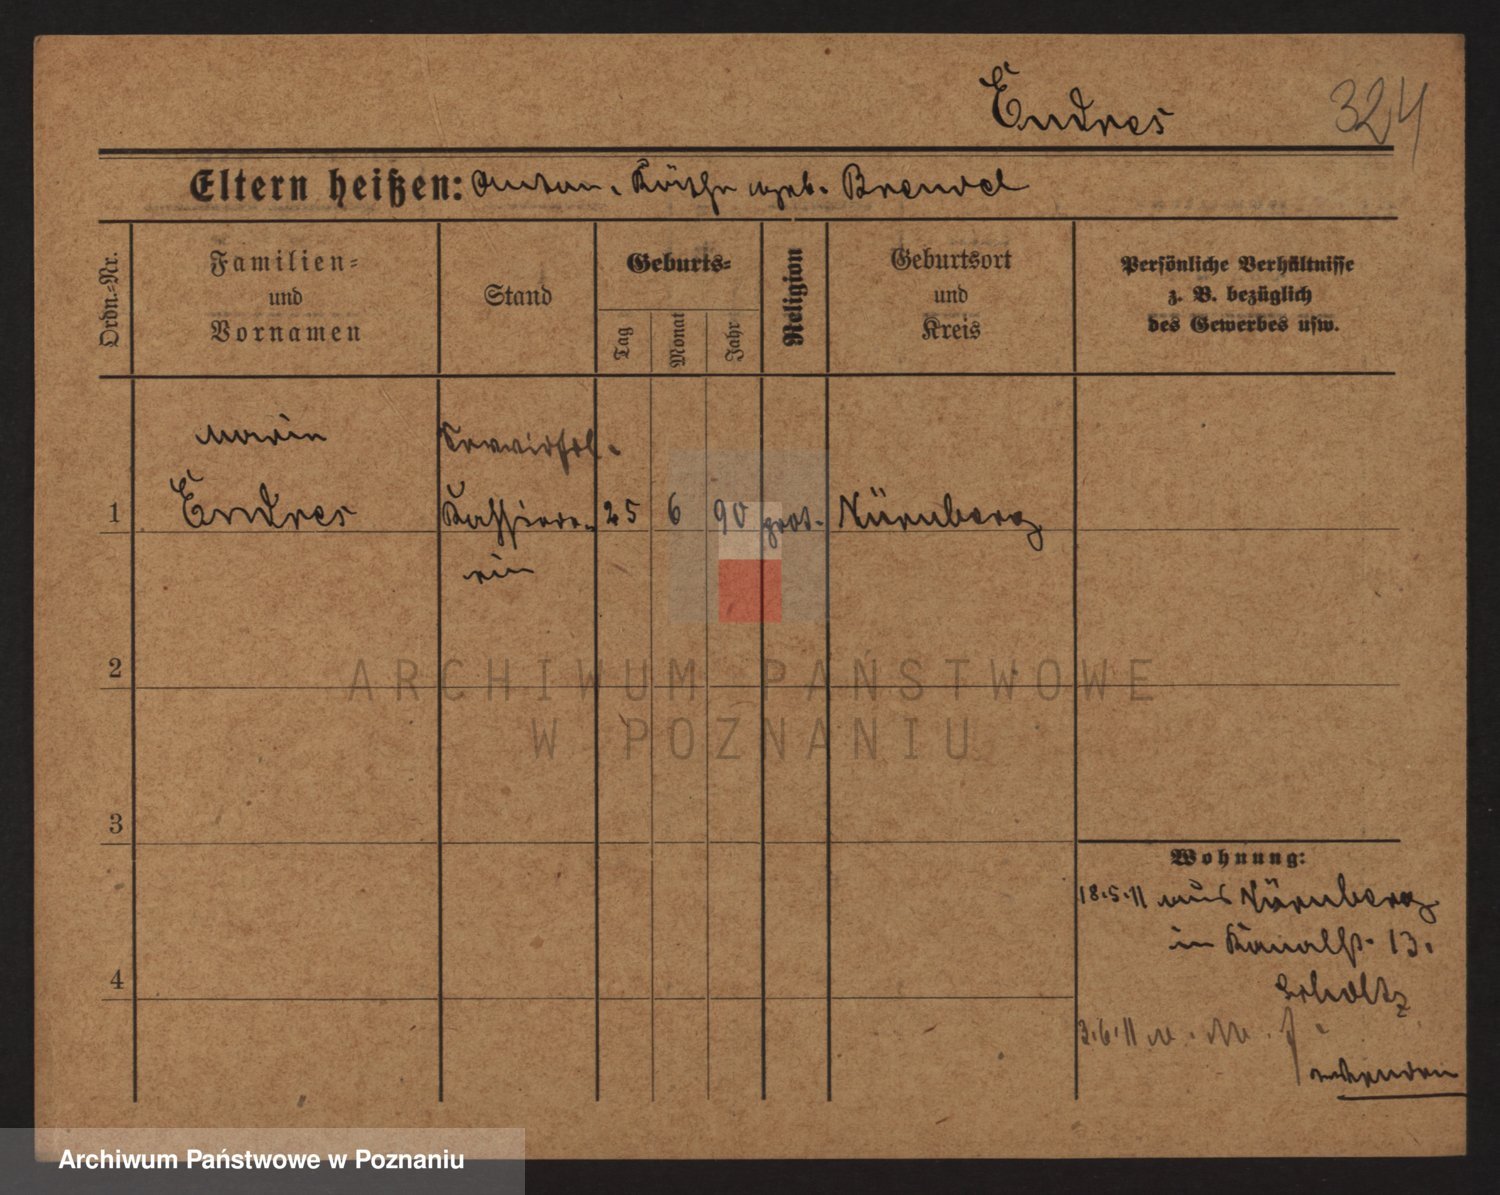 Endres
324
Eltern heißen: Anton. Käthe geb. Brendel
Ordn.-Nr.
Familien-
und
Vornamen
Stand
Geburts-
Tag
Monat
Jahr
Religion
Geburtsort
und
Kreis
Persönliche Verhältnisse
z. B. bezüglich
des Gewerbes usw.
Marie
1 Endres Kassiere- 25 6 90 prot. Nürnberg
rin
2
ARCHIWUM PAŃSTWOWE
W POZNANIU
3
Wohnung:
18.5.11 aus Nürnberg
in Kanalst. 13.
Scholtz
4
3.6.11 n.
wenden
Archiwum Państwowe w Poznaniu